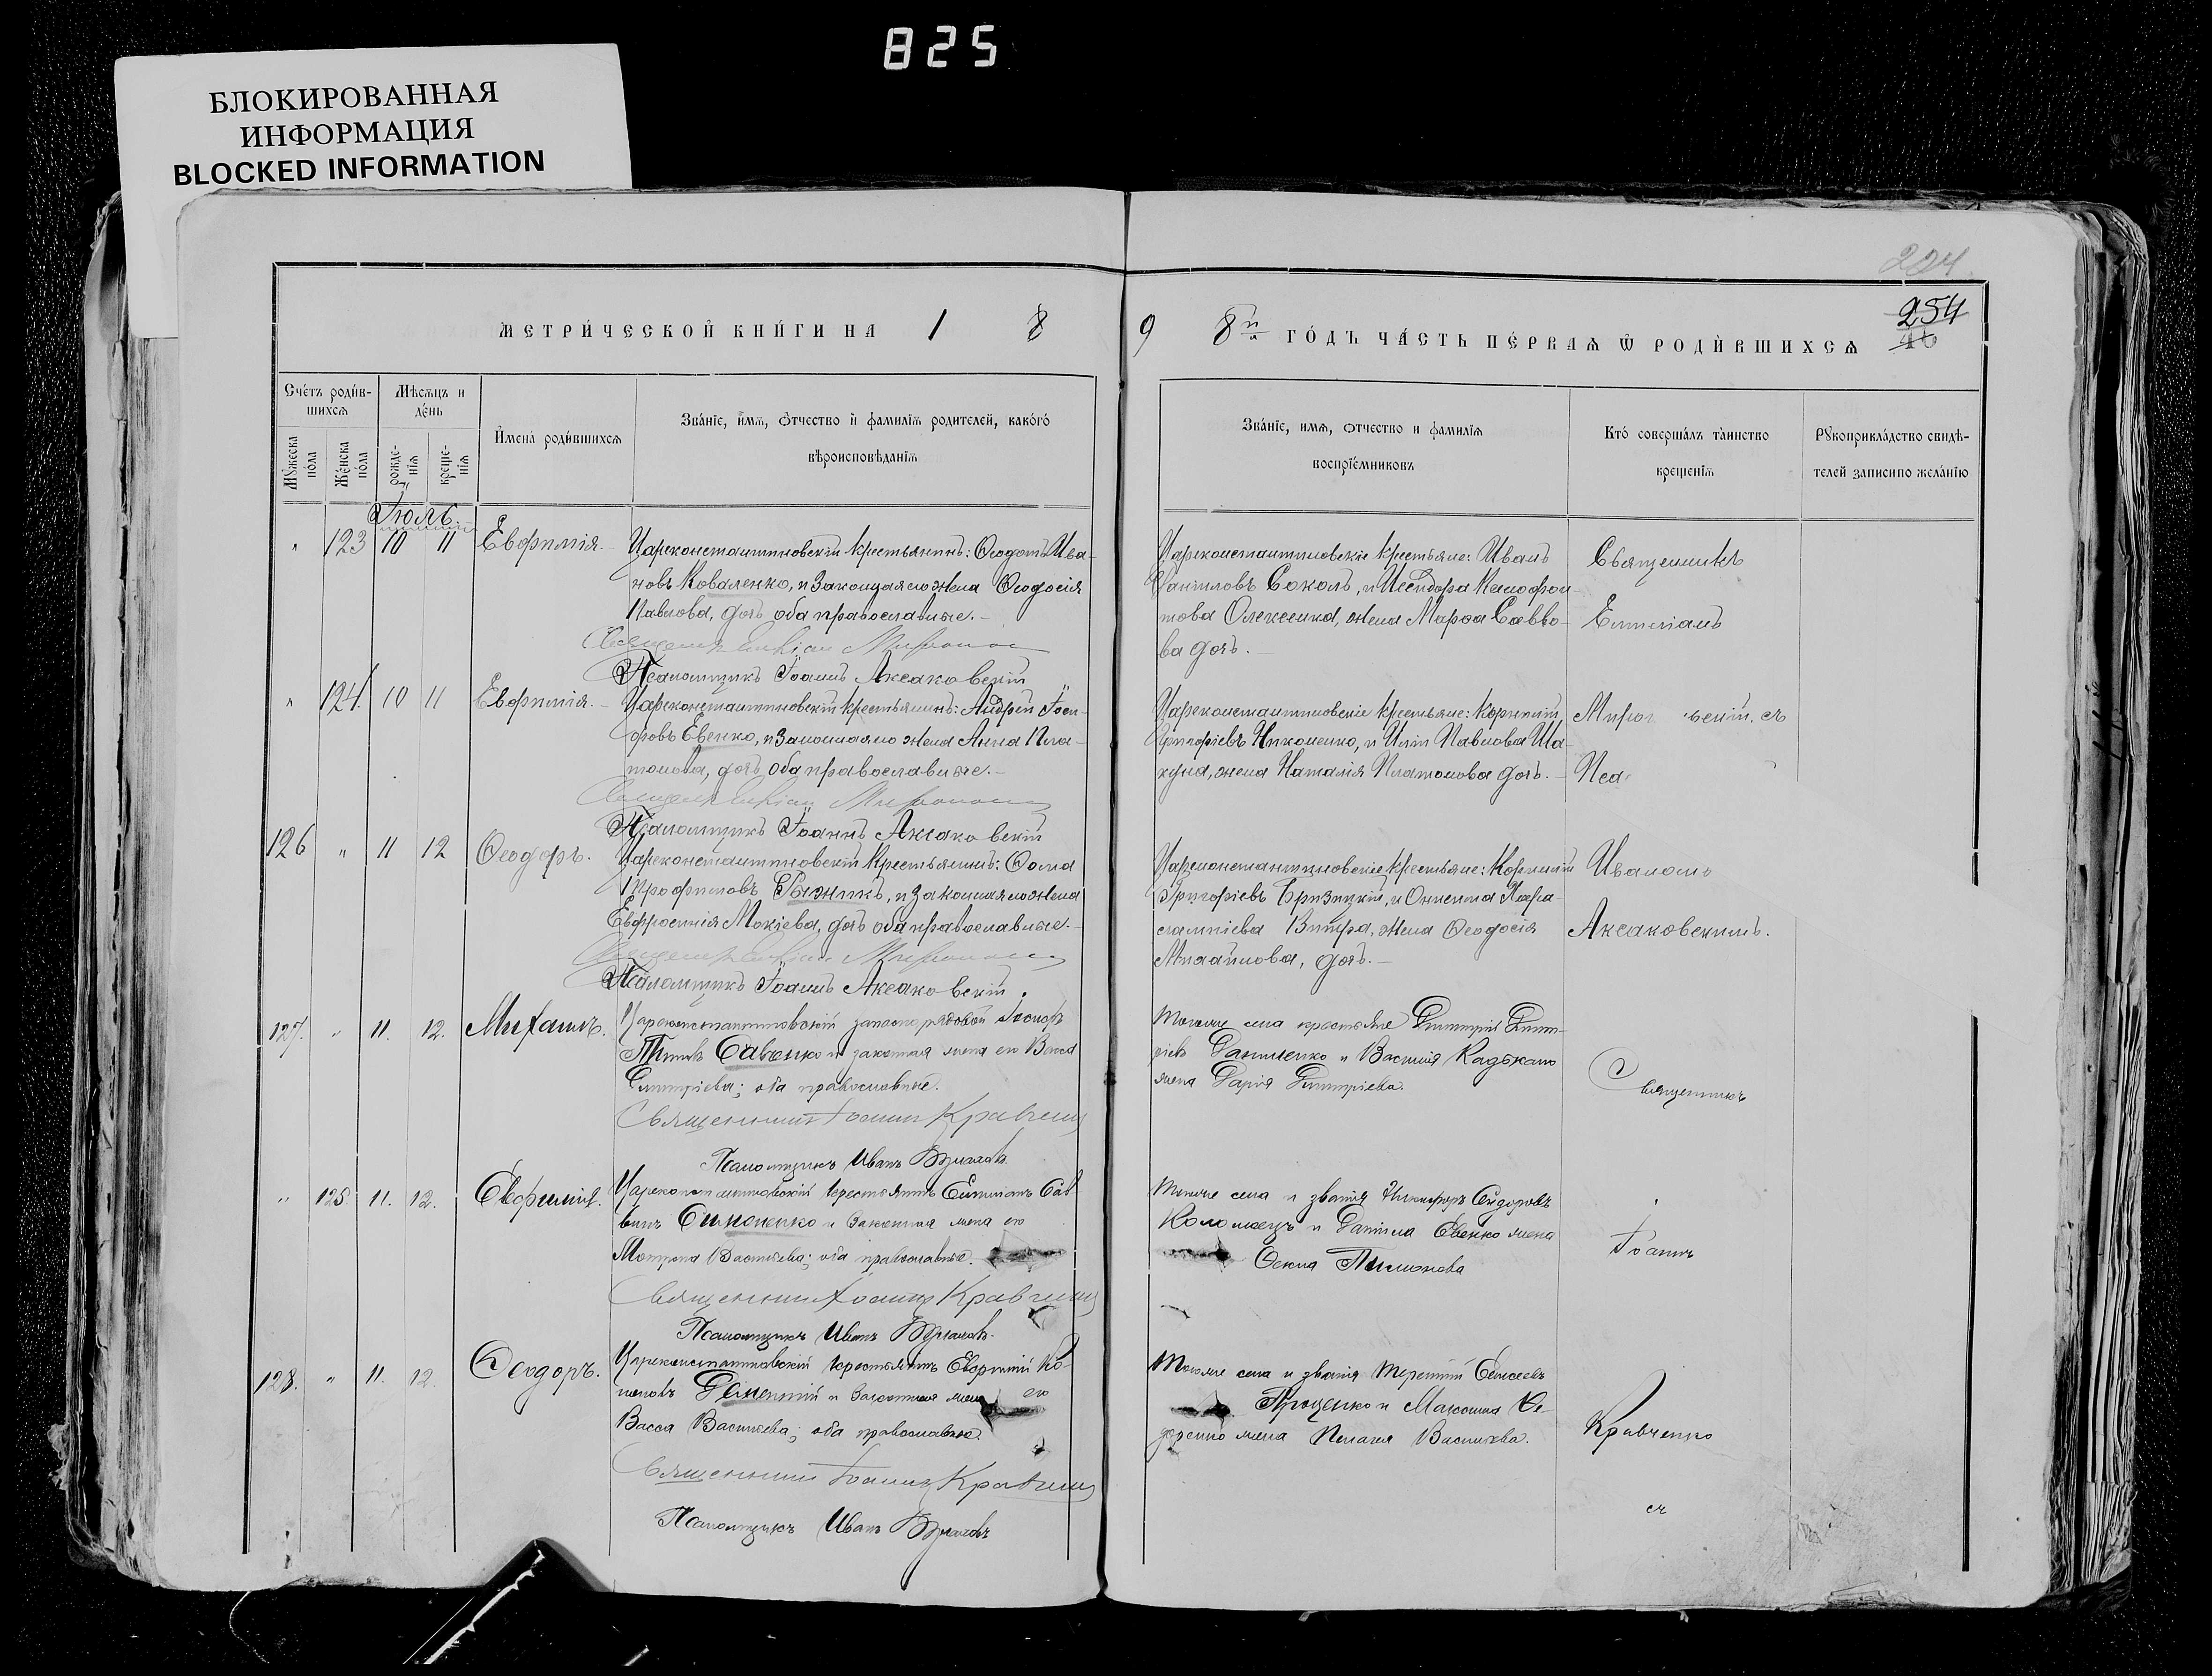 825
БЛОКИРОВАННАЯ
ИНФОРМАЦИЯ
BLOCKED INFORMATION
224
254
46
МЕТРИ́ЧЕСКОЙ КНИ́ГИ НА 1 8
9 8й ГО́ДЪ ЧА́СТЬ ПЕ́РВАѦ Ѿ РОДИ́ВШИХСѦ
Сче́тъ роди́в-
шихсѧ
Мѣсѧцъ и
де́нь
Мꙋ́жеска
по́ла
Же́нска
по́ла
рожде-
нїѧ
креще-
нїѧ
Имена́ роди́вшихсѧ
Зва́нїе, и́мѧ, ѻ́тчество и фамилїѧ родителей, како́гѡ
вѣроисповѣданїѧ
Зва́нїе, имѧ, ѻтчество и фамилїѧ
воспрїе́мниковъ
Кто́ совершалъ та́инство
крещенїѧ
Рꙋкоприкла́дство свидѣ-
телей записи по жела́нїю
Іюль.
" 123 10 11 Евфимія.
Цареконстантиновскій крестьянинъ: Ѳеодотъ Ива-
новъ Коваленко, и законная его жена Ѳеодосія
Павлова, дочь оба православные.
Псаломщикъ Іоаннъ Аксаковскій
Цареконстантиновскіе крестьяне: Иванъ
Даніиловъ Соколъ, и Исидора Ксенофон-
това Олексенка, жена Марѳа Савво-
ва дочь.
Священникъ
Емиліанъ
" 124 10 11 Евфимія.
Цареконстантиновскій крестьянинъ: Андрей Іоси-
фовъ Евенко, и Законная его жена Анна Пла-
тонова, дочь оба православные.
Псаломщикъ Іоаннъ Аксаковскій
Цареконстантиновскіе крестьяне: Корнилій
Григоріевъ Никоненко, и Иліи Павлова Ша-
куна, жена Наталія Платонова дочь.
Миро вскій. съ
Пса
126 " 11 12 Ѳеодоръ.
Цареконстантиновскій крестьянинъ: Ѳома
Трофимовъ Рыжикъ, и законная его жена
Евфросинія Мокіева, дочь оба православные.
Псаломщикъ Іоаннъ Аксаковскій.
Цареконстантиновскіе крестьяне: Корнилій
Григоріевъ жена Ѳеодосія
Михайлова, дочь.
Иваномъ
Аксаковскимъ.
127. " 11. 12. Михаилъ.
Цареконстантиновскій запасно рядовой Іосифъ
Савченко и законная жена его Васса
Димитріева; оба православные.
Священникъ Іоаннъ Кравченко
Псаломщикъ Иванъ
Того же села крестьяне Димитрій Димит-
ріевъ Даниленко и Василія
жена Дарія Димитріева.
Священникъ
" 125 11. 12. Евфимія.
Цареконстантиновскій крестьянинъ Емиліанъ Сав-
винъ Симоненко и Законная жена его
Матрона Василіева; оба православные.
Священникъ Іоаннъ Кравченко
Псаломщикъ Иванъ
Того же села и званія Никифоръ Сидоровъ
Коломоецъ и Даніила Евенко жена
Іоаннъ
128. " 11. 12. Ѳеодоръ.
Цареконстантиновскій крестьянинъ Евфимій Ко-
ноновъ и Законная жена его
Васса Василіева; оба православные.
Священникъ Іоаннъ Кравченко
Псаломщикъ Иванъ
Того же села и званія Терентій Елисеевъ
Проценко и Максима Ѳе-
доренко жена Пелагея Василіева.
Кравченко
съ